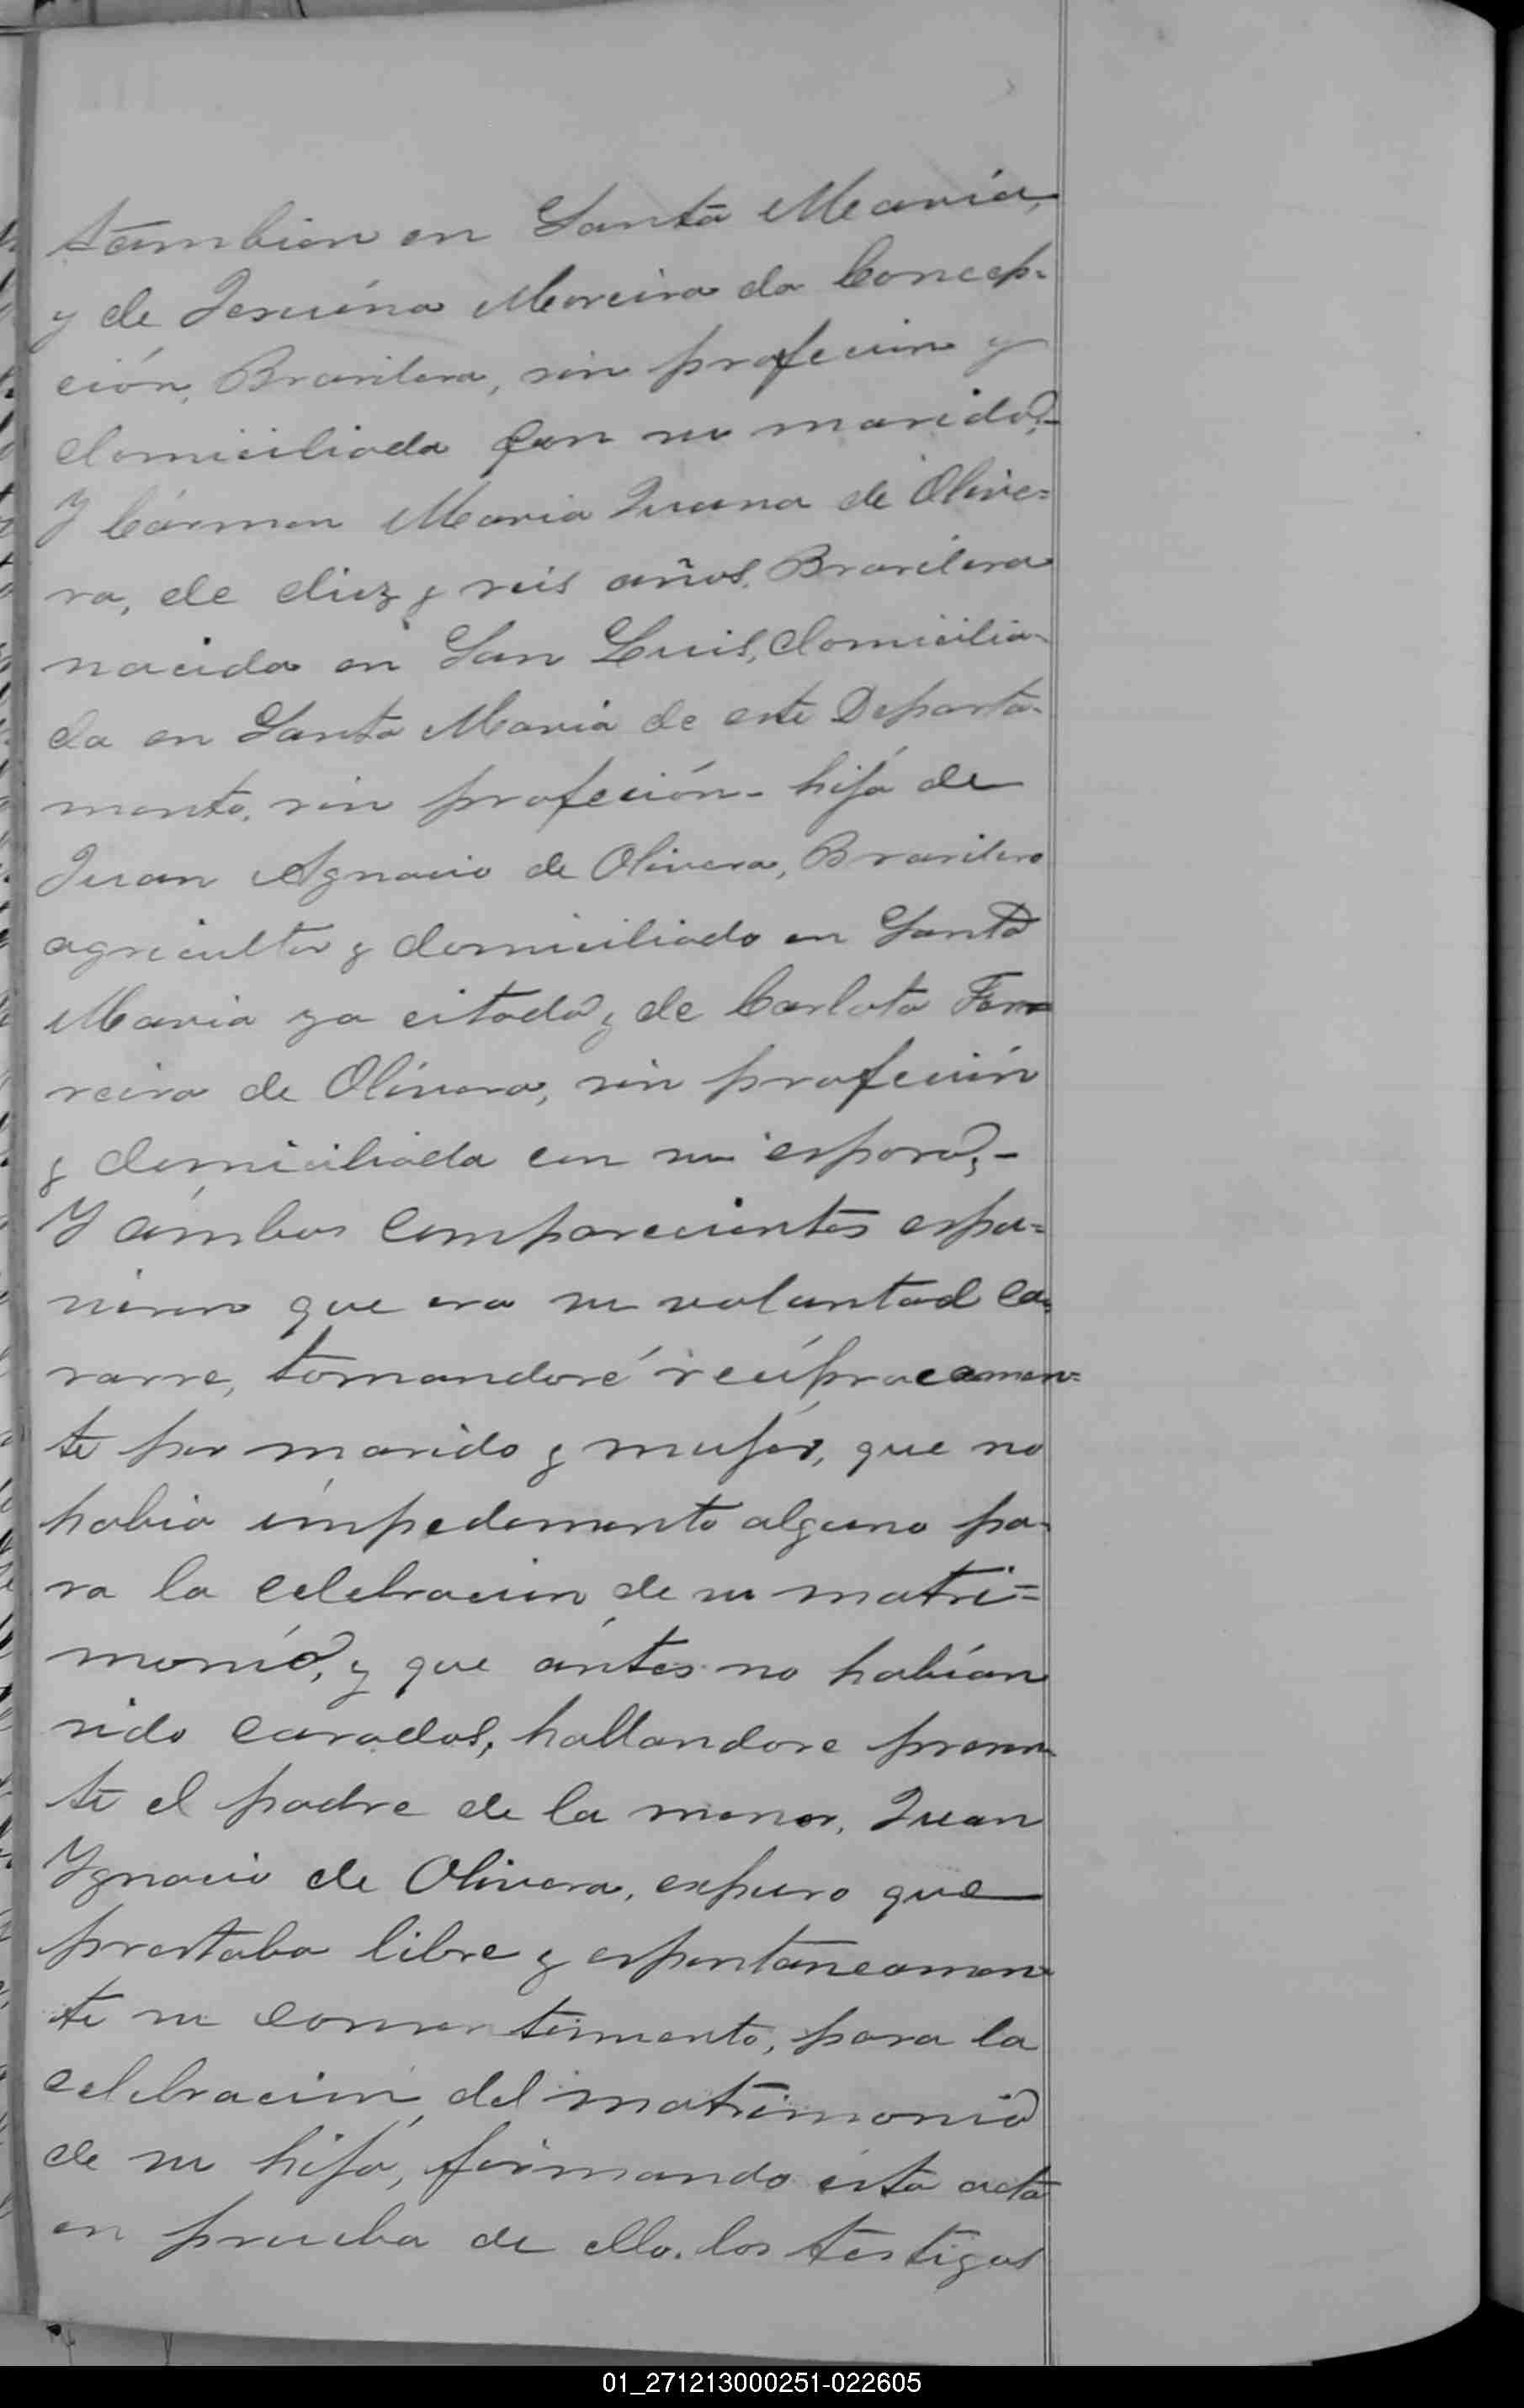 tambien en Santa Maria,
y de Jesuina Moreira da Concep-
ción, Brasilera, sin profecion y
domiciliada con su marido.-
Y Cármen Maria Juana de Olive=
ra, de diez y seis años, Brasilera
nacida en San Luis, domicilia-
da en Santa Maria de este Departa-
mento, sin profeción- hija de
Juan Ygnacio de Olivera, Brasilero
agricultor y domiciliado en Santa
Maria ya citada y de Carlota Fer
reira de Olivera, sin profeción
y domiciliada con su esposo,-
Y ámbos comparecientes espu=
sieron que era su voluntad ca=
sarse, tomandose reciprocamen=
te por marido y mujer, que no
habia impedemento alguno pa-
ra la celebracion de su matri=
monio, y que ántes no habían
sido casados, hallandose presen-
te el padre de la menor, Juan
Ygnacio de Olivera, expuso que
prestaba libre y espontaneamen-
te su consentimento, para la
celebracion del matrimonio
de su hija, firmando esta acta
en prueba de ello. los testigos
01_271213000251-022605